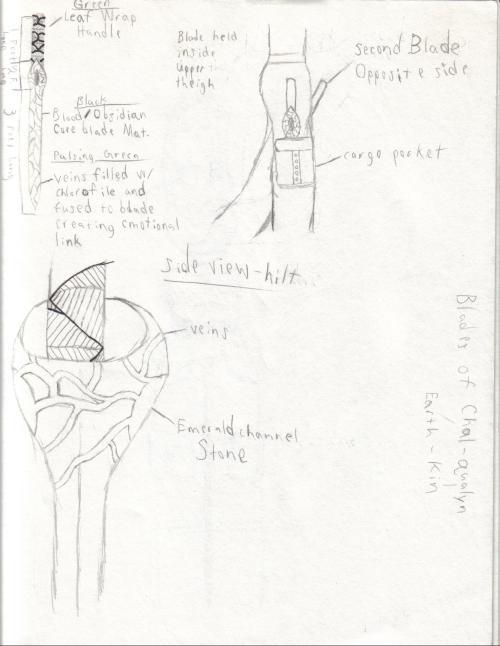 Green
Leaf Wrap
Handle
Black
Blood/Obsidian
Core blade Mat.
Pulsing Green
veins filled w/
chlorofile and
fused to blade
creating emotional
link
3 feet long
Blade held
inside
upper
theigh
second Blade
Opposite side
cargo pocket
side view-hilt
veins
Emerald channel
Stone
Blades of Chal-qualyn
Earth-Kin